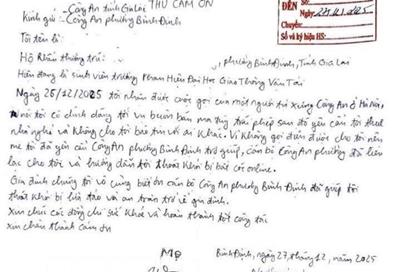 THƯ CẢM ƠN
Kính gửi: - Công An tỉnh Gia Lai
- Công An phường Bình Định
ĐẾN Số:
Ngày:
Chuyển:
Số và ký hiệu HS:
Tôi tên là:
Hộ khẩu thường trú: , phường Bình Định, Tỉnh Gia Lai
Hiện đang là sinh viên trường Phân Hiệu Đại Học Giao Thông Vận Tải
Ngày 26/12/2025 tôi nhận được cuộc gọi của một người tự xưng Công An ở Hà Nội,
nói tôi có dính dáng tới vụ buôn bán ma túy trái phép sau đó yêu cầu tôi thuê
nhà nghỉ và không cho tôi báo tin với ai khác. Vì không gọi điện được cho tôi nên
mẹ tôi đã yêu cầu Công An phường Bình Định trợ giúp, cán bộ Công An phường đã liên
lạc cho tôi và hướng dẫn tôi thoát khỏi bị bắt cóc online.
Gia đình chúng tôi vô cùng biết ơn cán bộ Công An phường Bình Định đã giúp tôi
thoát khỏi bị lừa đảo và an toàn trở về gia đình.
Xin chúc các đồng chí sức khỏe và hoàn thành tốt công tác
Xin chân thành cảm ơn
Mẹ
Bình Định, ngày 27, tháng 12, năm 2025